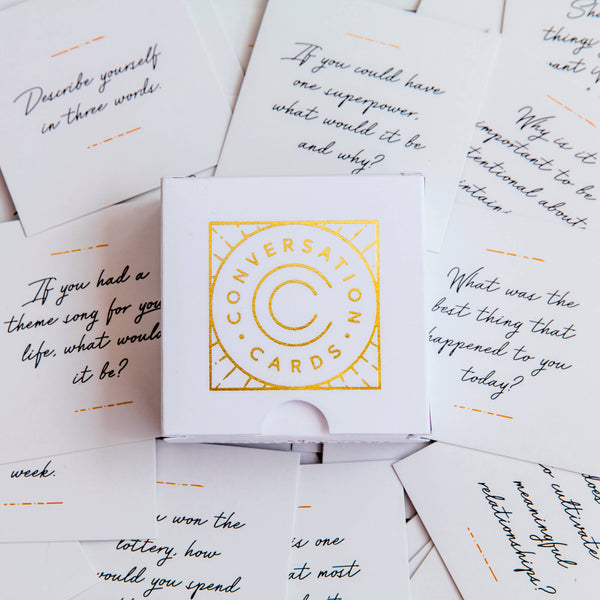 Describe yourself
in three words.
If you could have
one superpower,
what would it be
and why?
things
Why is it
important to be
about
CONVERSATION
CARDS
CC
If you had a
theme song for you
life, what would
it be?
What was the
best thing that
happened to you
today?
week.
won the
lottery, how
would you spend
is one
at most
does
o cultivate
meaningful
relationships?